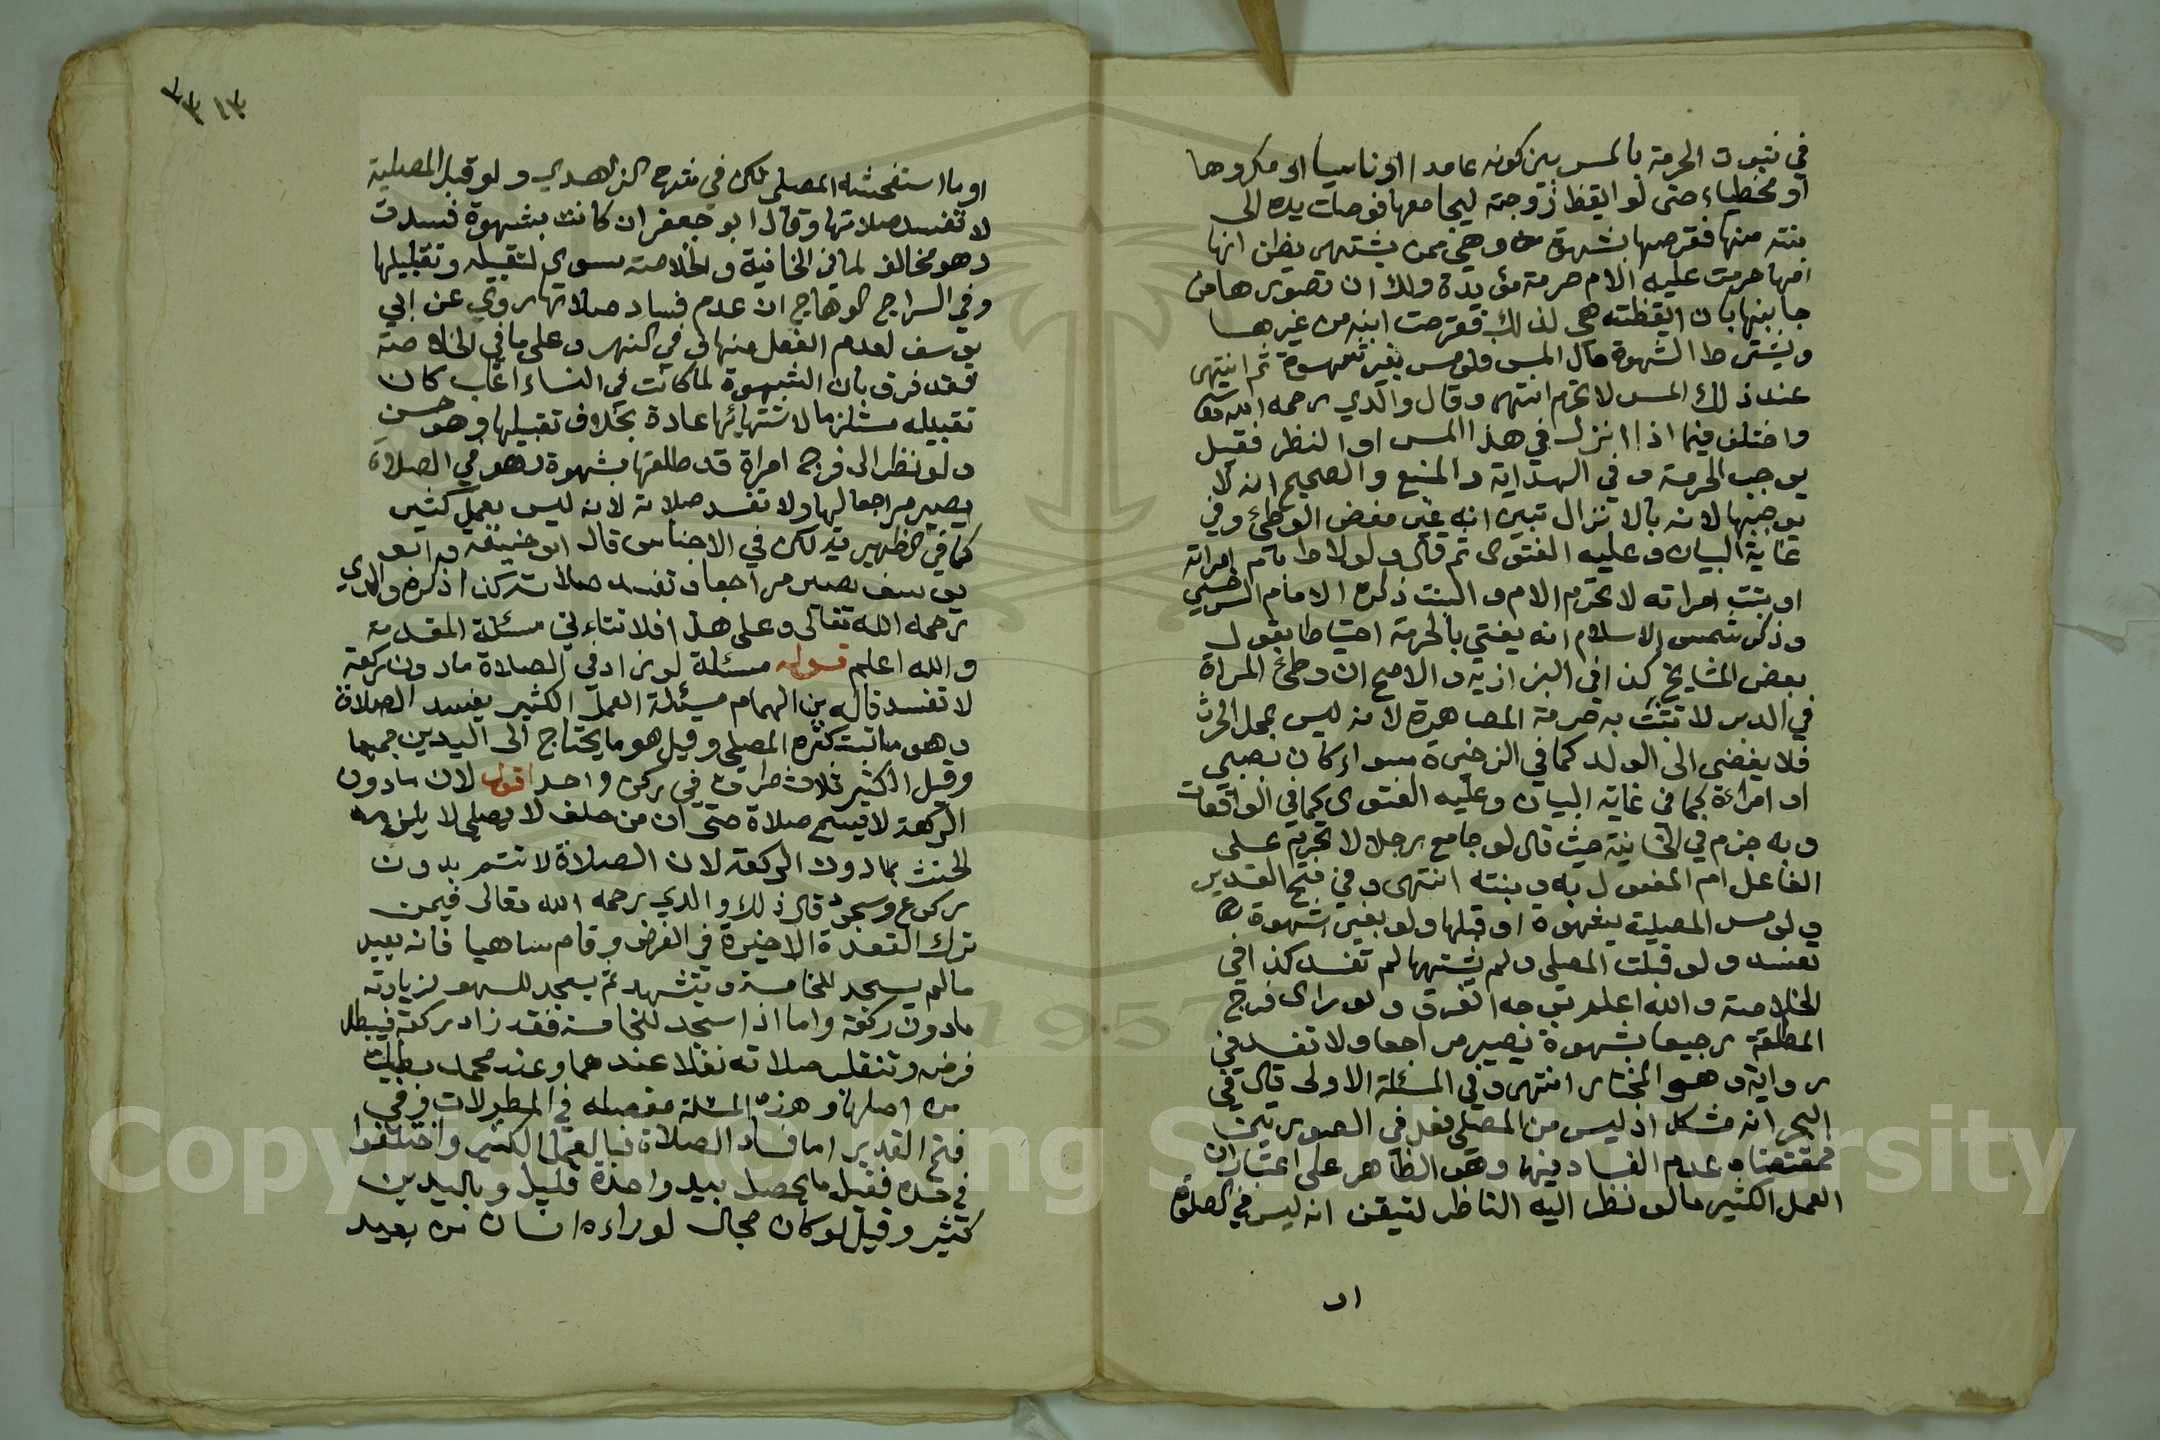 في ثبوت الحرمة بالمس بين كونه عامدا او ناسيا او مكروها
او مخطياء حتى لو ايقظ زوجته ليجامعها فوصلت يده الى
بنته منها فقرصها بشهوة وهي ممن يشتهى يظن انها
امها حرمت عليه الام حرمة مؤبدة ولك ان تصورها من
جانبها بان ايقظته هي لذلك فقرصت ابنه من غيرها
ويشترط الشهوة حال المس فلو مس بغير شهوة ثم اشتهى
عند ذلك المس لا تحرم انتهى وقال والدي رحمه الله تعالى
واختلف فيما اذا انزل في هذا المس او النظر فقيل
يوجب الحرمة وفي الهداية والمنبع والصحيح انه لا
يوجبها لانه بالانزال تبين انه غير مفض الوطئ وفي
غاية البيان وعليه الفتوى ثم قال ولو لاط بام امراته
او بنت امراته لا تحرم الام والبنت ذكره الامام السرخسي
وذكر شمس الاسلام انه يفتي بالحرمة احتياطا بقول
بعض المشايخ كذا في البزازيه والاصح ان وطئ المراة
في الدبر لا تثبت به حرمة المصاهرة لانه ليس بمحل الحرث
فلا يفضى الى الولد كما في الذخيرة سواء كان بصبي
او امراءة كما في غاية البيان وعليه الفتوى كما في الواقعات
وبه جزم في الخانية حيث قال لو جامع رجلا لا تحرم على
الفاعل ام المفعول به وبنته انتهى وفي فتح القدير
ولو مس المصلية بشهوة او قبلها ولو بغير شهوة
تفسد ولو قبلت المصلى ولم يشتهها لم تفسد كذا في
الخلاصة والله اعلم بوجه الفرق ولو راى فرج
المطلقة رجعيا بشهوة يصير مراجعا ولا تفسد في
رواية وهو المختار انتهى وفي المسئلة الاولى قال في
البحر انه مشكل اذ ليس من المصلى فعل في الصورتين
فمقتضاه عدم الفساد فيها وهو الظاهر على اعتبار ان
العمل الكثير ما لو نظر اليه الناظر لتيقن انه ليس في الصلاة
او
٣١٣
٣٣
او ما استفحشه المصلى لكن في شرح الزاهدي ولو قبل المصلية
لا تفسد صلاتها وقال ابو جعفر ان كانت بشهوة فسدت
وهو مخالف لما في الخانية والخلاصة سوى لتقبيله وتقبيلها
وفي السراج الوهاج ان عدم فساد صلاتها روي عن ابي
يوسف لعدم الفعل منها وفي النهر وعلى ما في الخلاصة
فقد فرق بان الشهوة لما كانت في النساء اغلب كان
تقبيله مستلزما لاشتهائها عادة بخلاف تقبيلها وهو حسن
ولو نظر الى فرج امراة قد طلقها بشهوة وهو في الصلاة
يصير مراجعا لها ولا تفسد صلاته لانه ليس بعمل كثير
كما في الظهيرية لكن في الاجناس قال ابو حنيفة وابو
يوسف يصير مراجعا وتفسد صلاته كذا ذكره والدي
رحمه الله تعالى وعلى هذا فلا تتاءتى مسئلة المقدمة
والله اعلم قوله مسئلة لو زاد في الصلاة ما دون ركعة
لا تفسد قال بن الهمام مسئلة العمل الكثير يفسد الصلاة
وهو ما تثبت كثره المصلى وقيل هو ما يحتاج الى اليدين جميعا
وقيل الكثير ثلاث حركات في ركن واحد اقول لان ما دون
الركعة لا يسمى صلاة حتى ان من حلف لا يصلى لا يلزمه
الحنث بما دون الركعة لان الصلاة لا تتم بدون
ركوع وسجود قال ذلك والدي رحمه الله تعالى فيمن
ترك القعدة الاخيرة في الفرض وقام ساهيا فانه يعيد
ما لم يسجد للخامسة ويتشهد ثم يسجد للسهو لزيادته
ما دون ركعة واما اذا سجد للخامسة فقد زاد ركعة فيبطل
فرضه وتنقلب صلاته نفلا عندهما وعند محمد بطلت
من اصلها وهذه المسئلة مفصلة في المطولات وفي
فتح القدير اما فساد الصلاة فبالعمل الكثير واختلفوا
في حده فقيل ما يحصل بيد واحدة قليل وباليدين
كثير وقيل لو كان بحال لو راءه انسان من بعيد
Copyright © King Saud University
1957